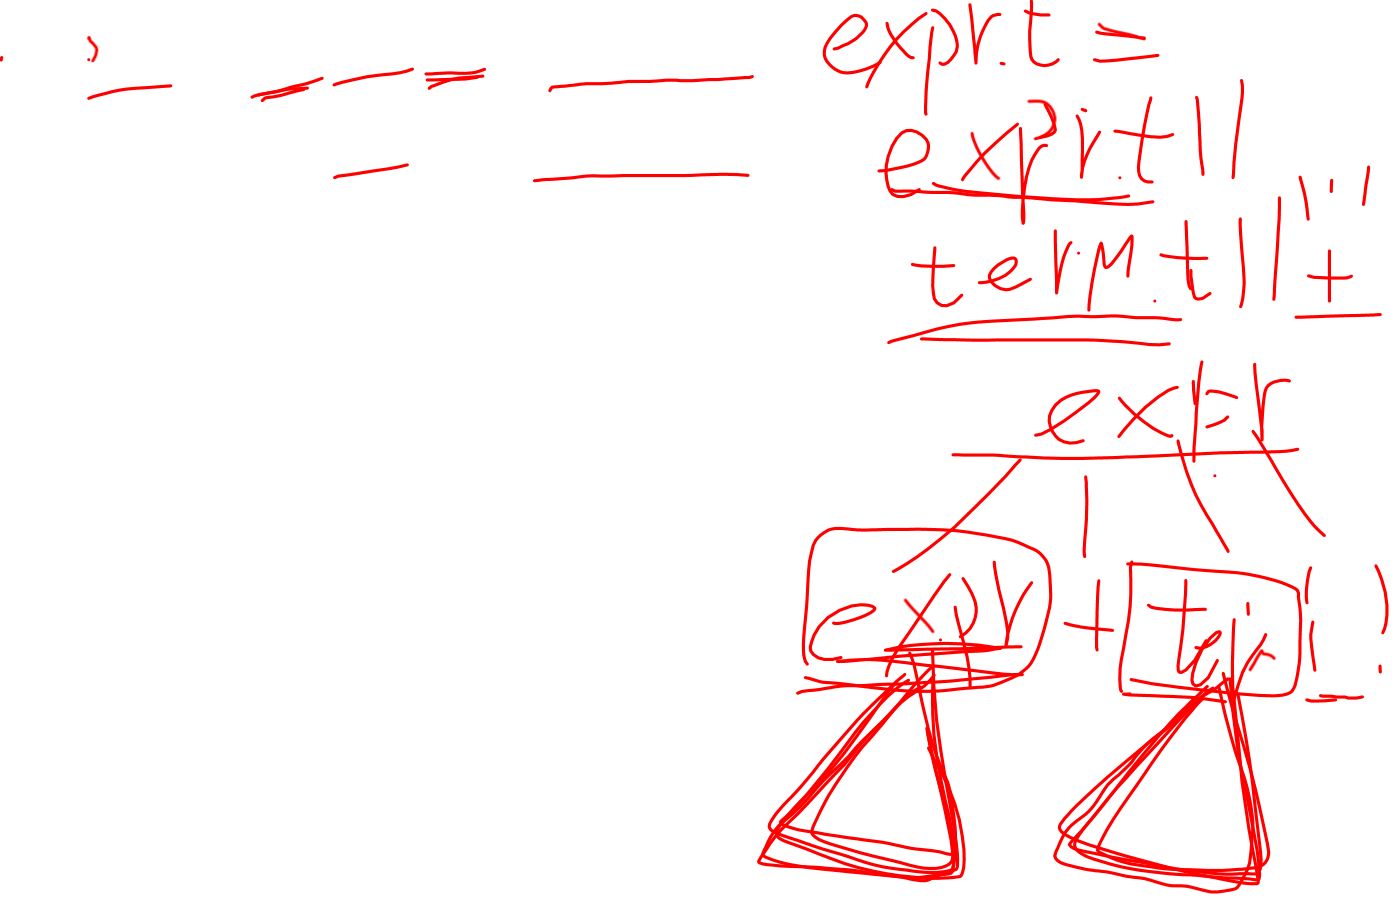 expr.t =
expr.t ||
term.t || '+'
expr
expr + ter ( )